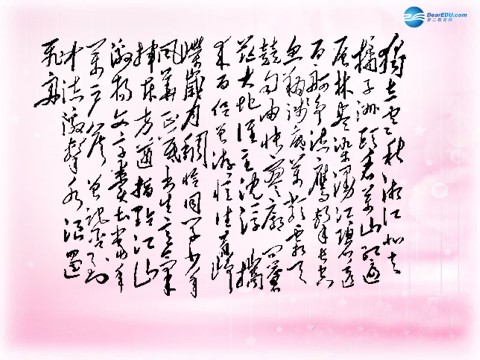 DearEDU.com
第二教育网
独立寒秋湘江北去
橘子洲头看万山红遍
层林尽染漫江碧透
百舸争流鹰击长空
鱼翔浅底万类霜天
竞自由怅寥廓问苍
茫大地谁主沉浮携
来百侣曾游忆往昔峥
嵘岁月稠恰同学少年
风华正茂书生意气
挥斥方遒指点江山
激扬文字粪土当年
万户侯曾记否到
中流击水浪遏
飞舟